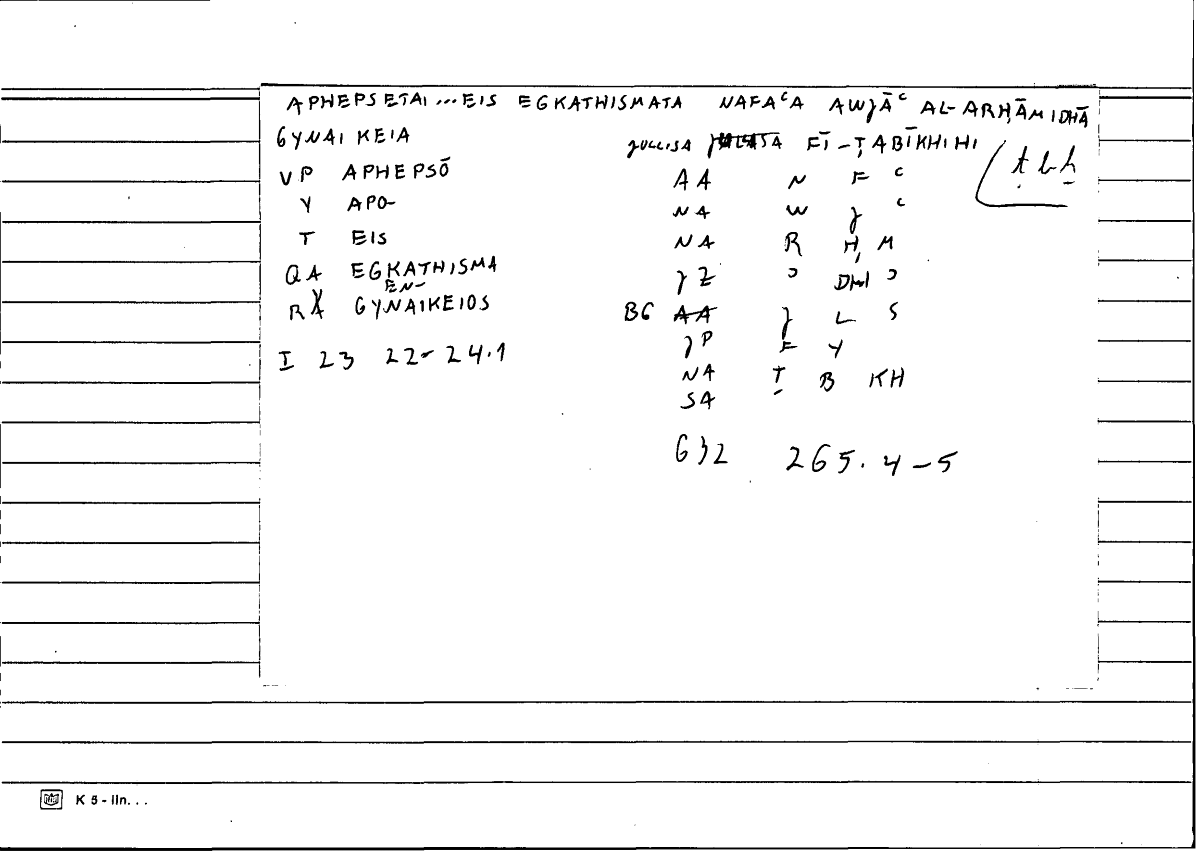 APHEPSETAI...EIS EGKATHISMATA NAFAᶜA AWJĀᶜ AL-ARḤĀM IDHĀ
GYNAIKEIA JULLISA FĪ-ṬABĪKHIHI
VP APHEPSŌ AA N F ᶜ ṭbḫ
Y APO- NA W J ᶜ
T EIS NA R Ḥ M
QA EGKATHISMA JZ ʾ DH ʾ
EN-
RX GYNAIKEIOS BG AA J L S
JP F Y
I 23 22-24.1 NA Ṭ B KH
SA
G32 265.4-5
K 5 - IIn...